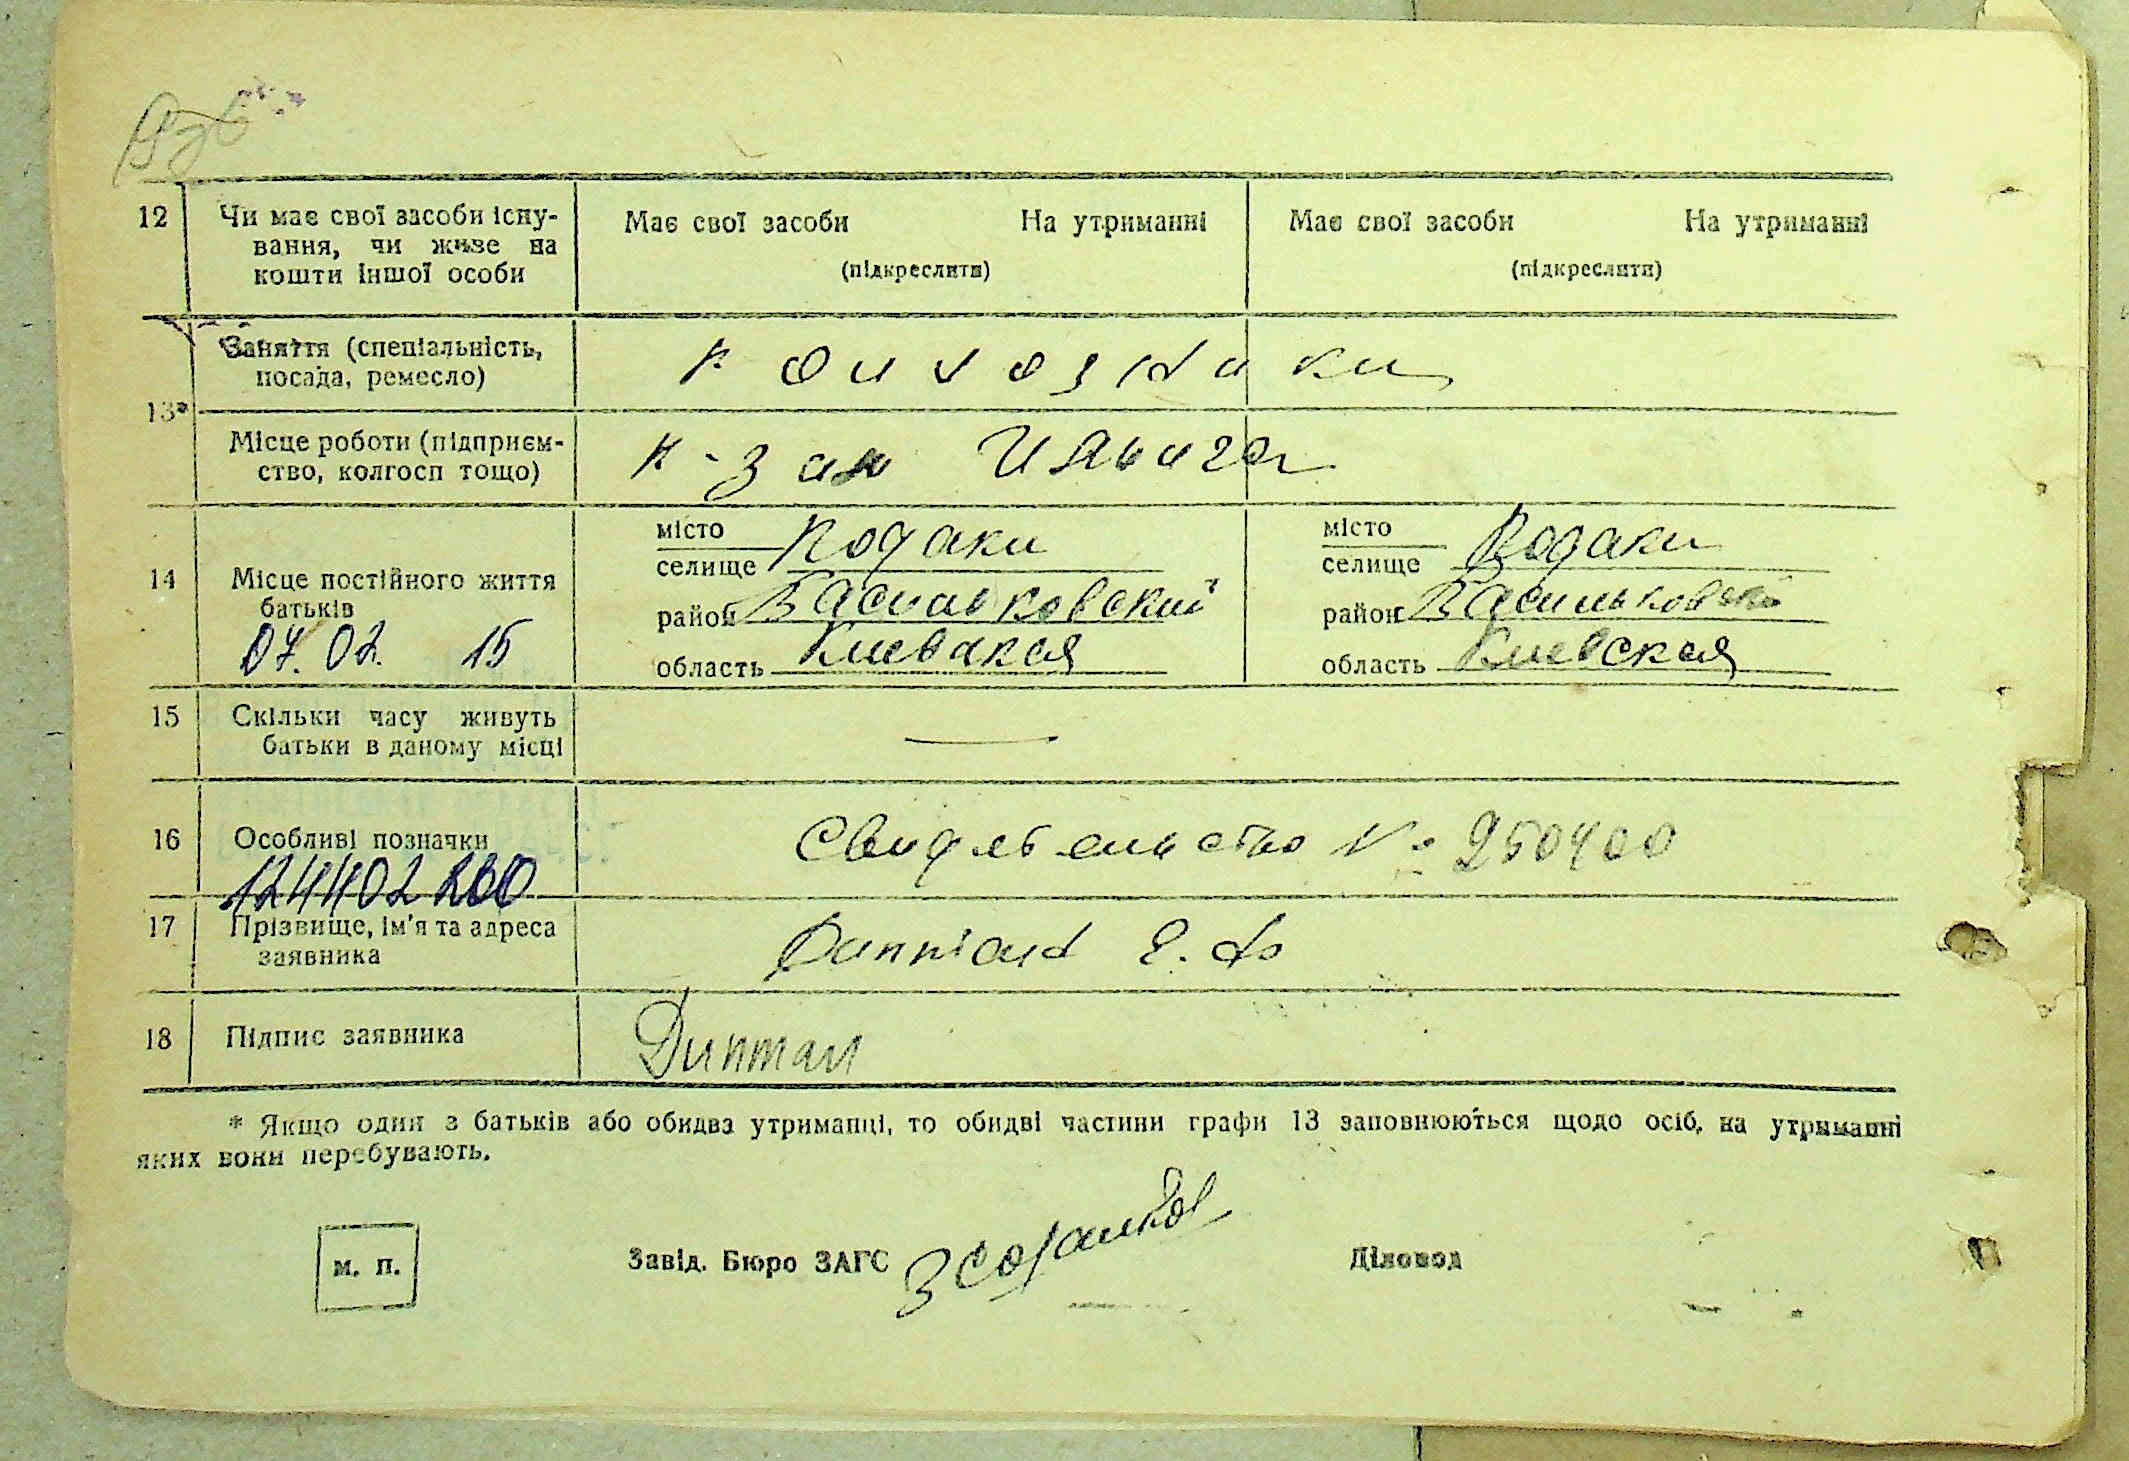 12 Чи має свої засоби існу-
вання, чи живе на
кошти іншої особи
Має свої засоби На утриманні
(підкреслити)
Має свої засоби На утриманні
(підкреслити)
13*
Заняття (спеціальність,
посада, ремесло)
Колхозники
Місце роботи (підприєм-
ство, колгосп тощо)
к-з им Ильича
14 Місце постійного життя
батьків
07.02. 15
місто
селище Кодаки
район Васильковский
область Киевская
місто
селище Кодаки
район Васильковский
область Киевская
15 Скільки часу живуть
батьки в даному місці
—
16 Особливі позначки
Свидетельство № 250400
17 Прізвище, ім'я та адреса
заявника
18 Підпис заявника
Диптан
* Якщо один з батьків або обидва утриманці, то обидві частини графи 13 заповнюються щодо осіб, на утриманні
яких вони перебувають.
м. п.
Завід. Бюро ЗАГС
Діловод